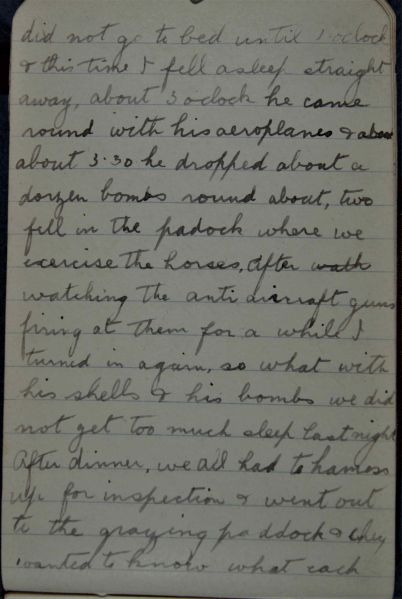 did not go to bed until 1 oclock
& this time I fell asleep straight
away, about 3 oclock he came
round with his aeroplanes & about
about 3.30 he dropped about a
dorzen bombs round about, two
fell in the padock where we
exercise the horses, after walk
watching the anti aircraft guns
firing at them for a while I
turned in again, so what with
his shells & his bombs we did
not get too much sleep last night
After dinner, we all had to harness
up for inspection & went out
to the grazing paddock & they
wanted to know what each